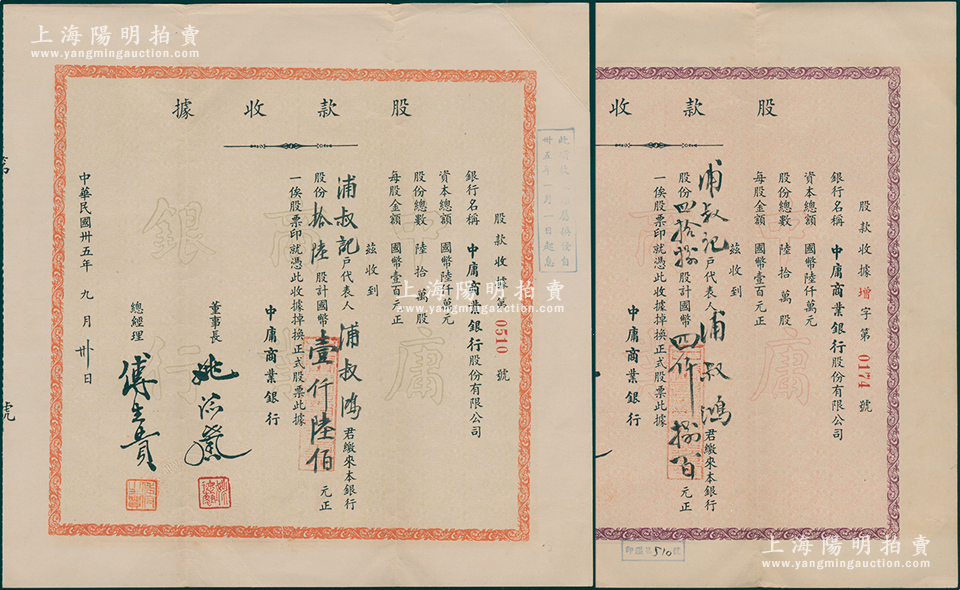 上海陽明拍賣
www.yangmingauction.com
股款收據
股款收據第0510號
銀行名稱 中庸商業銀行股份有限公司
資本總額 國幣陸仟萬元
股份總數 陸拾萬股
每股金額 國幣壹百元正
茲收到
浦叔記戶代表人浦叔鴻君繳來本銀行
股份拾陸股計國幣壹仟陸佰元正
一俟股票印就憑此收據掉換正式股票此據
中庸商業銀行
董事長
總經理
中華民國卅五年九月卅日
號
股款收
股款收據增字第0174號
銀行名稱 中庸商業銀行股份有限公司
資本總額 國幣陸仟萬元
股份總數 陸拾萬股
每股金額 國幣壹百元正
茲收到
浦叔記戶代表人浦叔鴻君繳來本銀行
股份四拾捌股計國幣四仟捌百元正
一俟股票印就憑此收據掉換正式股票此據
中庸商業銀行
510
上海陽明拍賣
www.yangmingauction.com